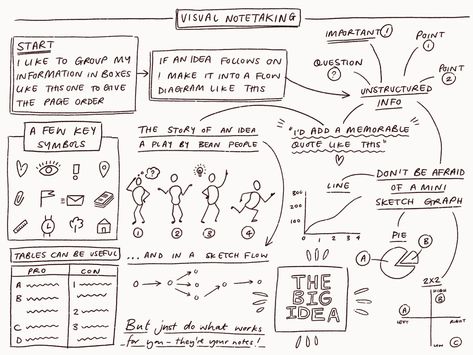 VISUAL NOTETAKING
START
I LIKE TO GROUP MY
INFORMATION IN BOXES
LIKE THIS ONE TO GIVE
THE PAGE ORDER
IF AN IDEA FOLLOWS ON
I MAKE IT INTO A FLOW
DIAGRAM LIKE THIS
IMPORTANT!
POINT
1
QUESTION
?
POINT
2
UNSTRUCTURED
INFO
A FEW KEY
SYMBOLS
THE STORY OF AN IDEA
A PLAY BY BEAN PEOPLE
?
1
2
3
4
"I'D ADD A MEMORABLE
QUOTE LIKE THIS"
DON'T BE AFRAID
OF A MINI
SKETCH GRAPH
LINE
300
200
100
0
1 2 3 4
PIE
A
B
2X2
HIGH
LOW
LEFT
RIGHT
A
B
C
TABLES CAN BE USEFUL
PRO CON
A 1
B
2
C 3
D
...AND IN A SKETCH FLOW
THE
BIG
IDEA
But just do what works
for you - they're your notes!